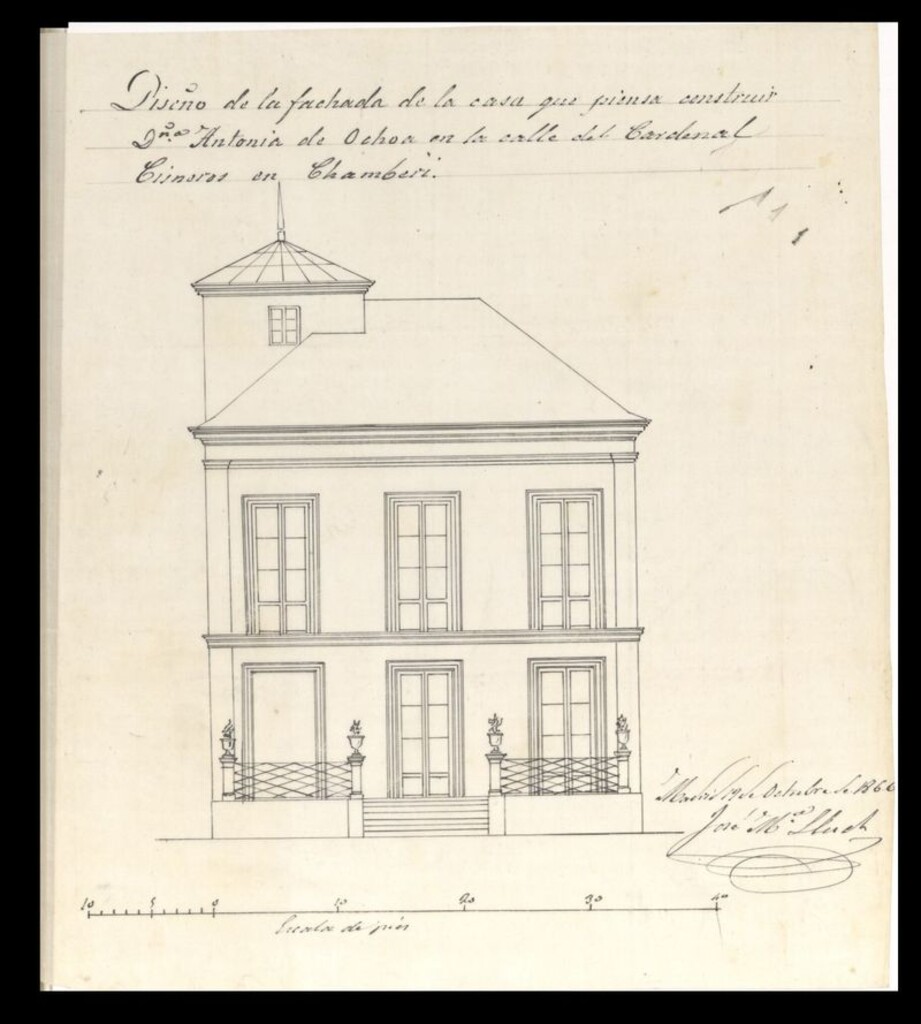 Diseño de la fachada de la casa que piensa construir
Dñª Antonia de Ochoa en la calle del Cardenal
Cisneros en Chamberí.
Madrid 19 de Octubre de 1866
José Mª Lluch
10 5 0 10 20 30 40
Escala de pies